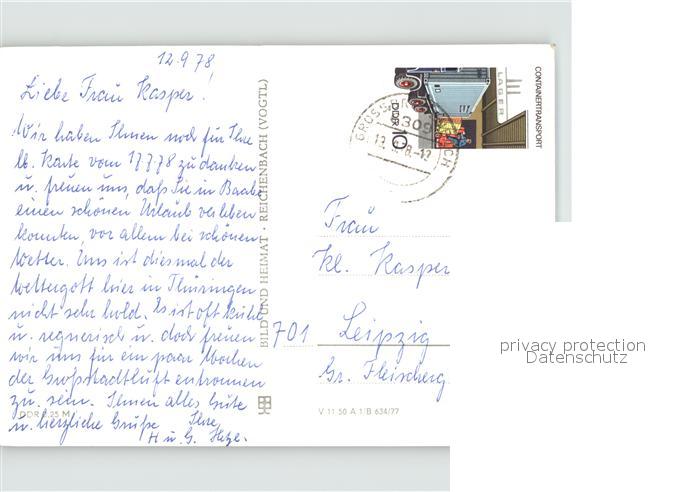 12.9.78
Liebe Frau Kasper!
Wir haben Ihnen noch für Ihre
lb. Karte vom 17.7.78 zu danken
u. freuen uns, daß Sie in Baabe
einen schönen Urlaub verleben
konnten, vor allem bei schönen
Wetter. Uns ist diesmal der
Wettergott hier in Thüringen
nicht sehr hold. Es ist oft kühl
u. regnerisch u. doch freuen
wir uns für ein paar Wochen
der Großstadtluft entronnen
zu sein. Ihnen alles Gute
u. herzliche Grüße Ihre
H u. G.
DDR 0.25 M
BILD UND HEIMAT · REICHENBACH (VOGTL)
V 11 50 A 1/B 634/77
CONTAINERTRANSPORT
LAGER
DDR 10
Frau
Kl. Kasper
701 Leipzig
Gr. Fleischerg
privacy protection
Datenschutz